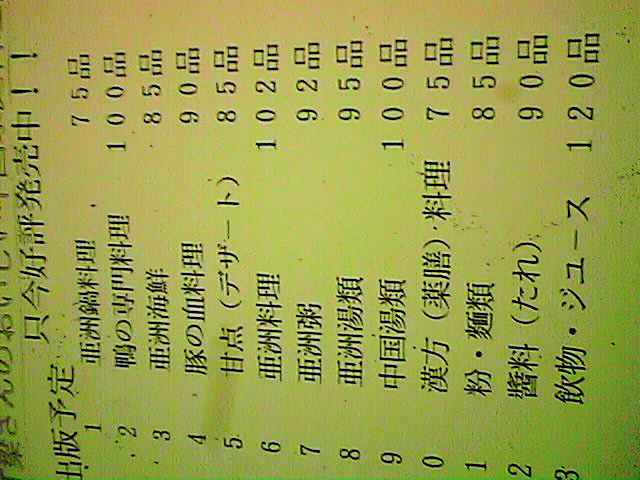 只今好評発売中！！
出版予定
1 亜洲鍋料理 75品
2 鴨の専門料理 100品
3 亜洲海鮮 85品
4 豚の血料理 90品
5 甘点（デザート） 85品
6 亜洲料理 102品
7 亜洲粥 92品
8 亜洲湯類 95品
9 中国湯類 100品
0 漢方（薬膳）・料理 75品
1 粉・麵類 85品
2 醬料（たれ） 90品
3 飲物・ジュース 120品